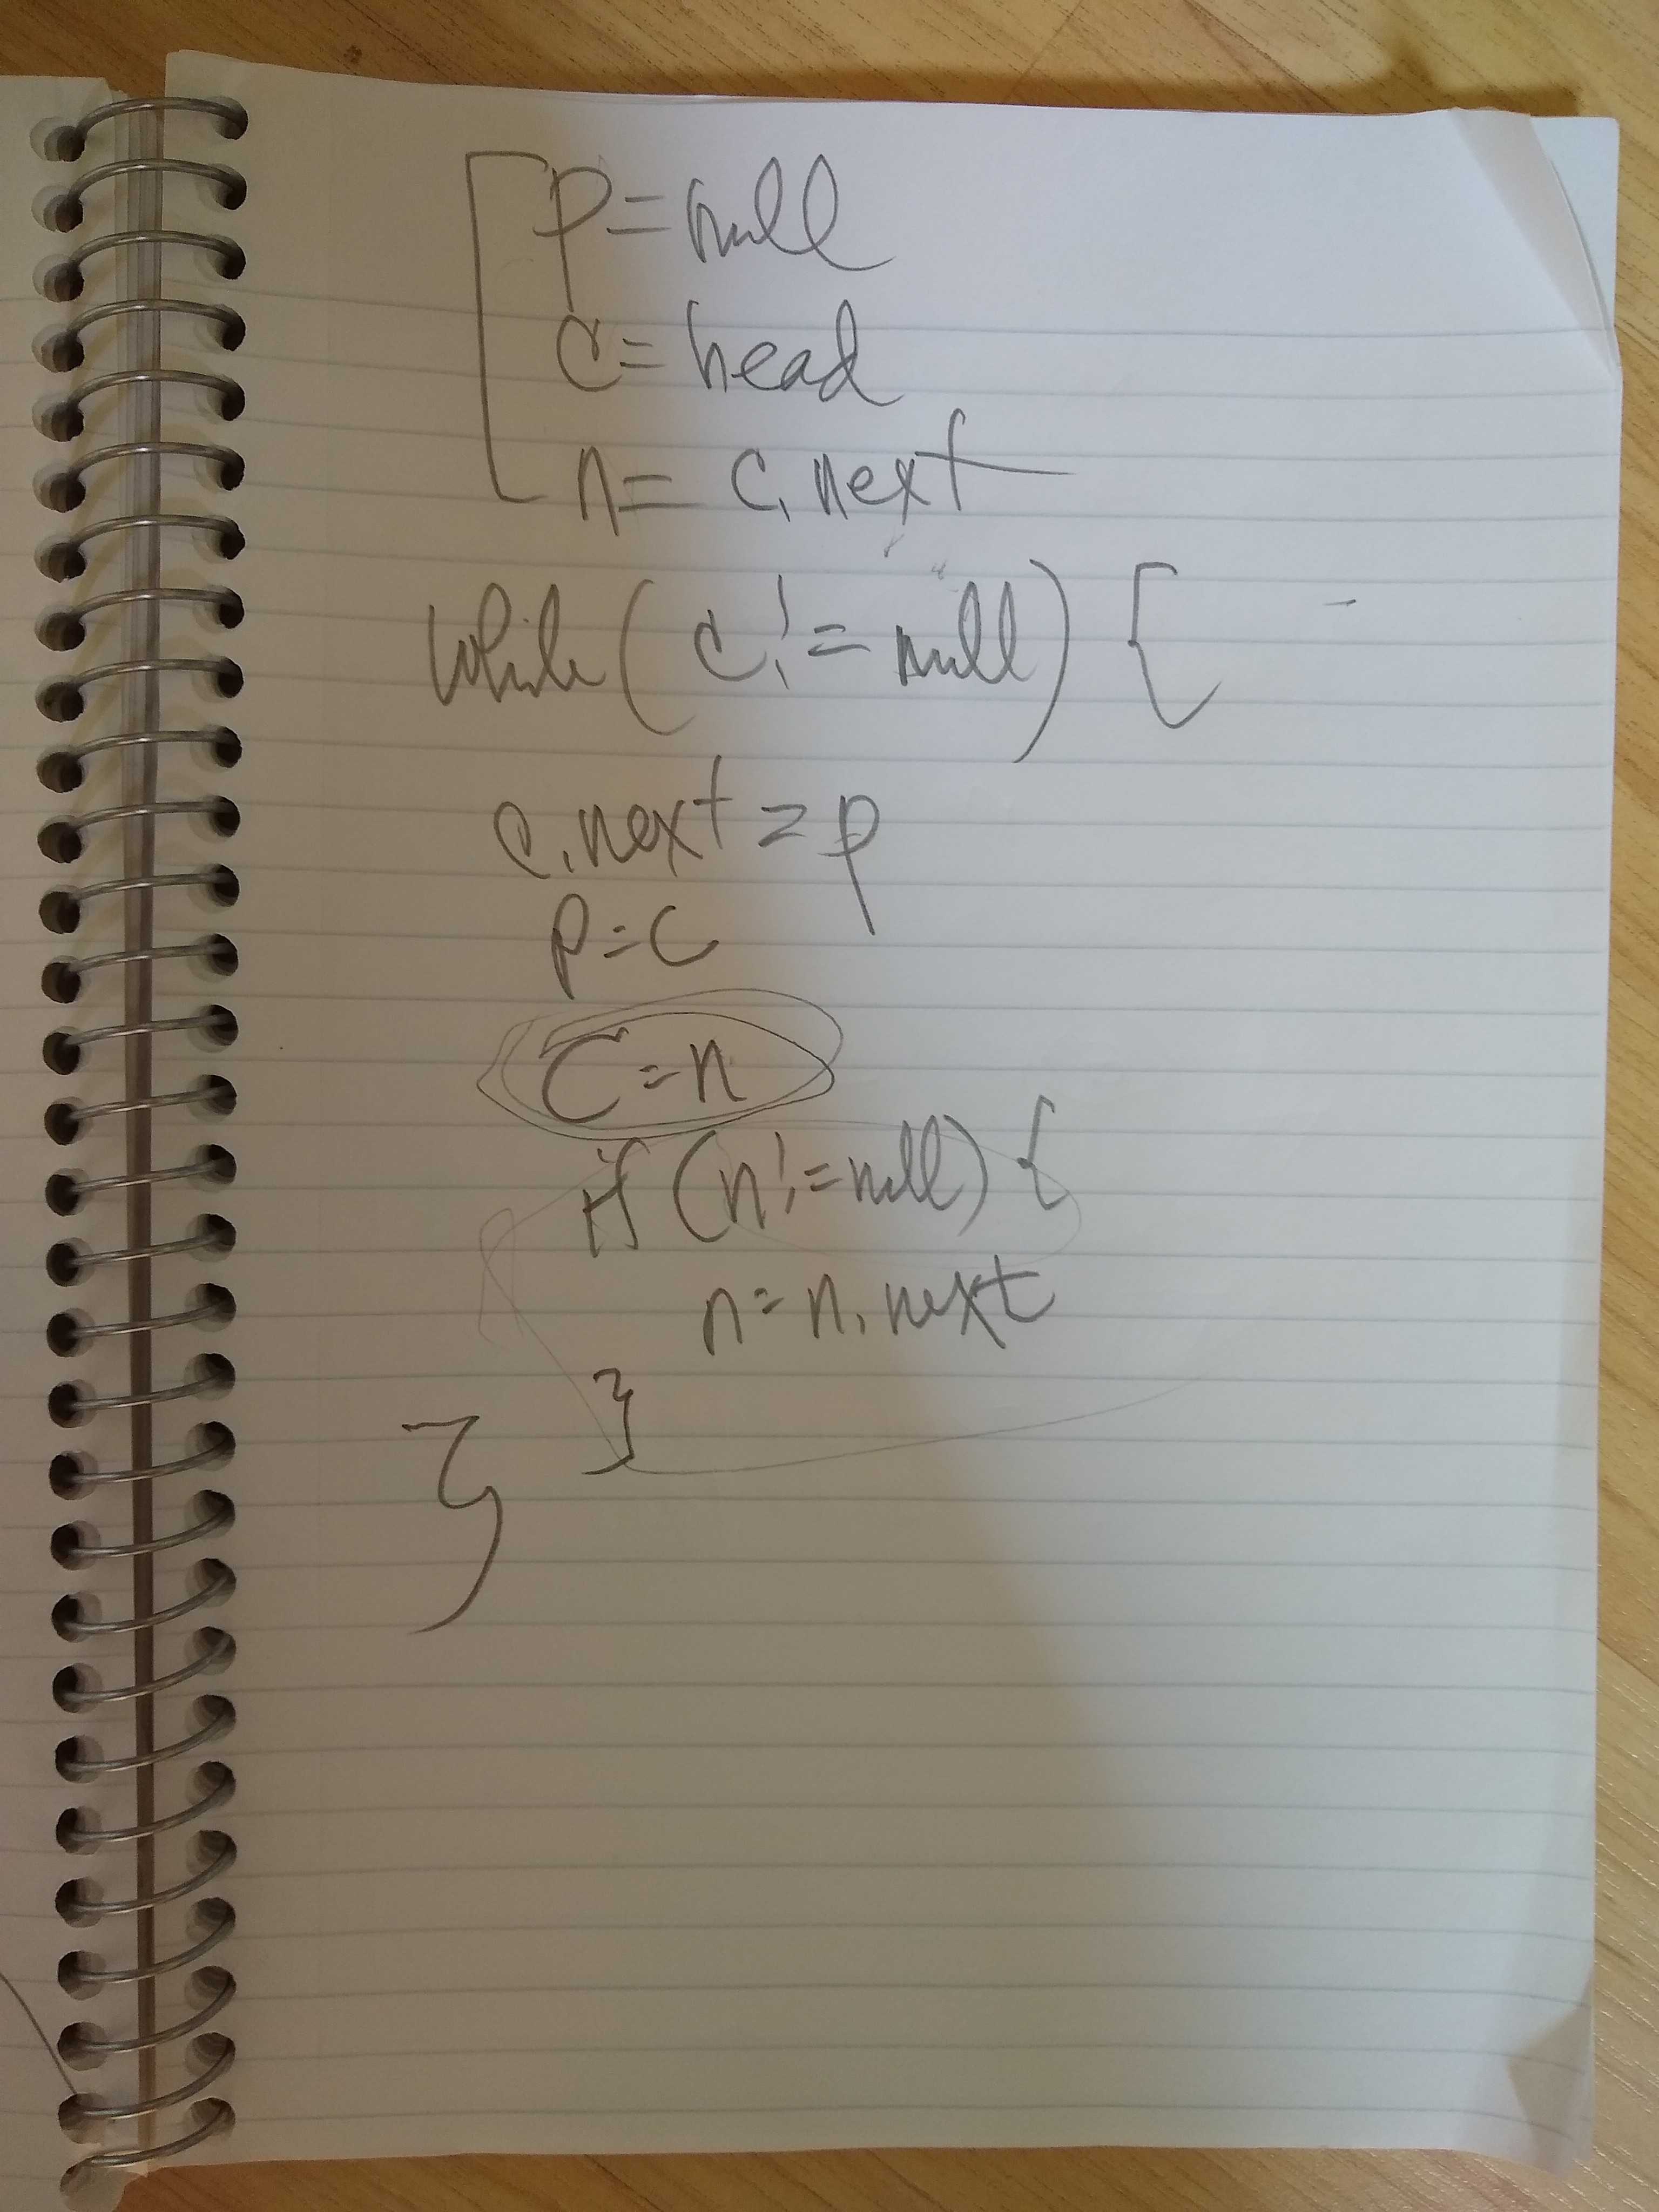 p=null
c=head
n= c.next
while(c!=null) {
c.next=p
p=c
c=n
if (n!=null) {
n=n.next
}
}